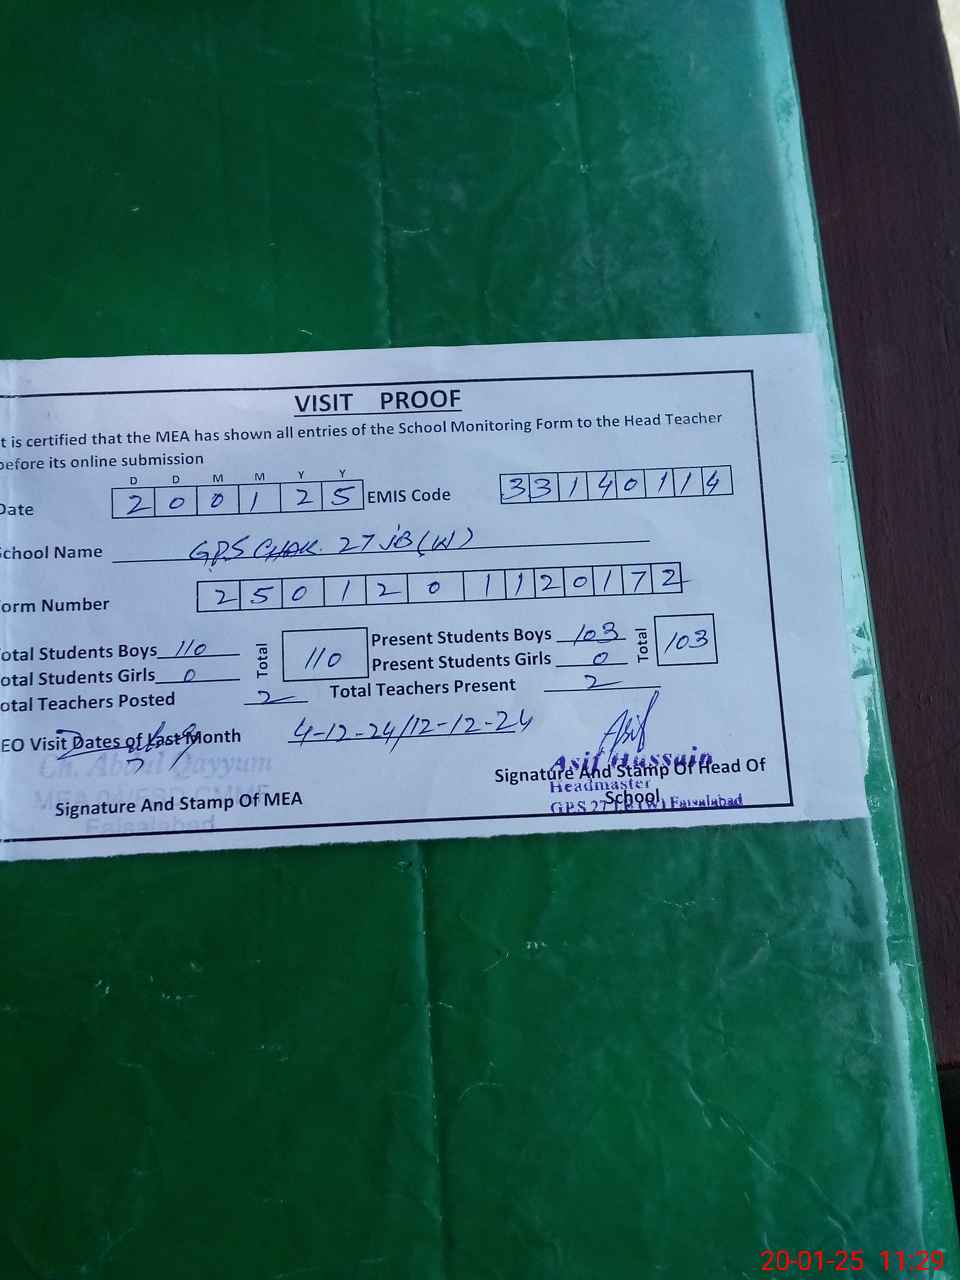 VISIT PROOF
t is certified that the MEA has shown all entries of the School Monitoring Form to the Head Teacher
before its online submission
D D M M Y Y
Date 2 0 0 1 2 5 EMIS Code 3 3 1 4 0 1 1 4
School Name GPS CHAK. 27 JB (W)
orm Number 2 5 0 1 2 0 1 1 2 0 1 7 2
otal Students Boys 110 Total 110 Present Students Boys 103 Total 103
otal Students Girls 0 Present Students Girls 0
otal Teachers Posted 2 Total Teachers Present 2
EO Visit Dates of Last Month 4-12-24/12-12-24
Asif
Ch. Abdul Qayyum
Asif Hussain
Signature And Stamp Of MEA
Signature And Stamp Of Head Of
School
Headmaster
GPS 27 Faisalabad
Faisalabad
20-01-25 11:29